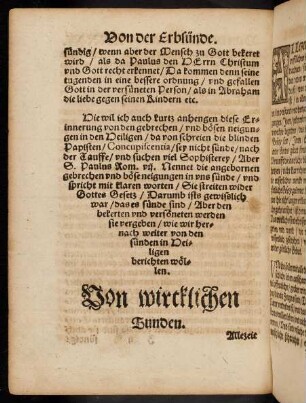 Von der Erbsünde.
sündig / wenn aber der Mensch zu Gott bekeret
wird / als da Paulus den HErrn Christum
vnd Gott recht erkennet / Da kommen denn seine
tugenden in eine bessere ordnung / vnd gefallen
Gott in der versüneten Person / als in Abraham
die liebe gegen seinen Kindern etc.
Die wil ich auch kurtz anhengen diese Er-
innerung von den gebrechen / vnd bösen neigun-
gen in den Heiligen / da von schreien die blinden
Papisten / Concupiscentia / sey nicht sünde / nach
der Tauffe / vnd suchen viel Sophisterey / Aber
S. Paulus Rom. vij. Nennet die angebornen
gebrechen vnd böse neigungen in vns sünde / vnd
spricht mit klaren worten / Sie streiten wider
Gottes Gesetz / Darumb ists gewislich
war / das es sünde sind / Aber den
bekerten vnd versöneten werden
sie vergeben / wie wir her-
nach weiter von den
sünden in Hei-
ligen
berichten wöl-
len.
Von wircklichen
Sunden.
Allezeit